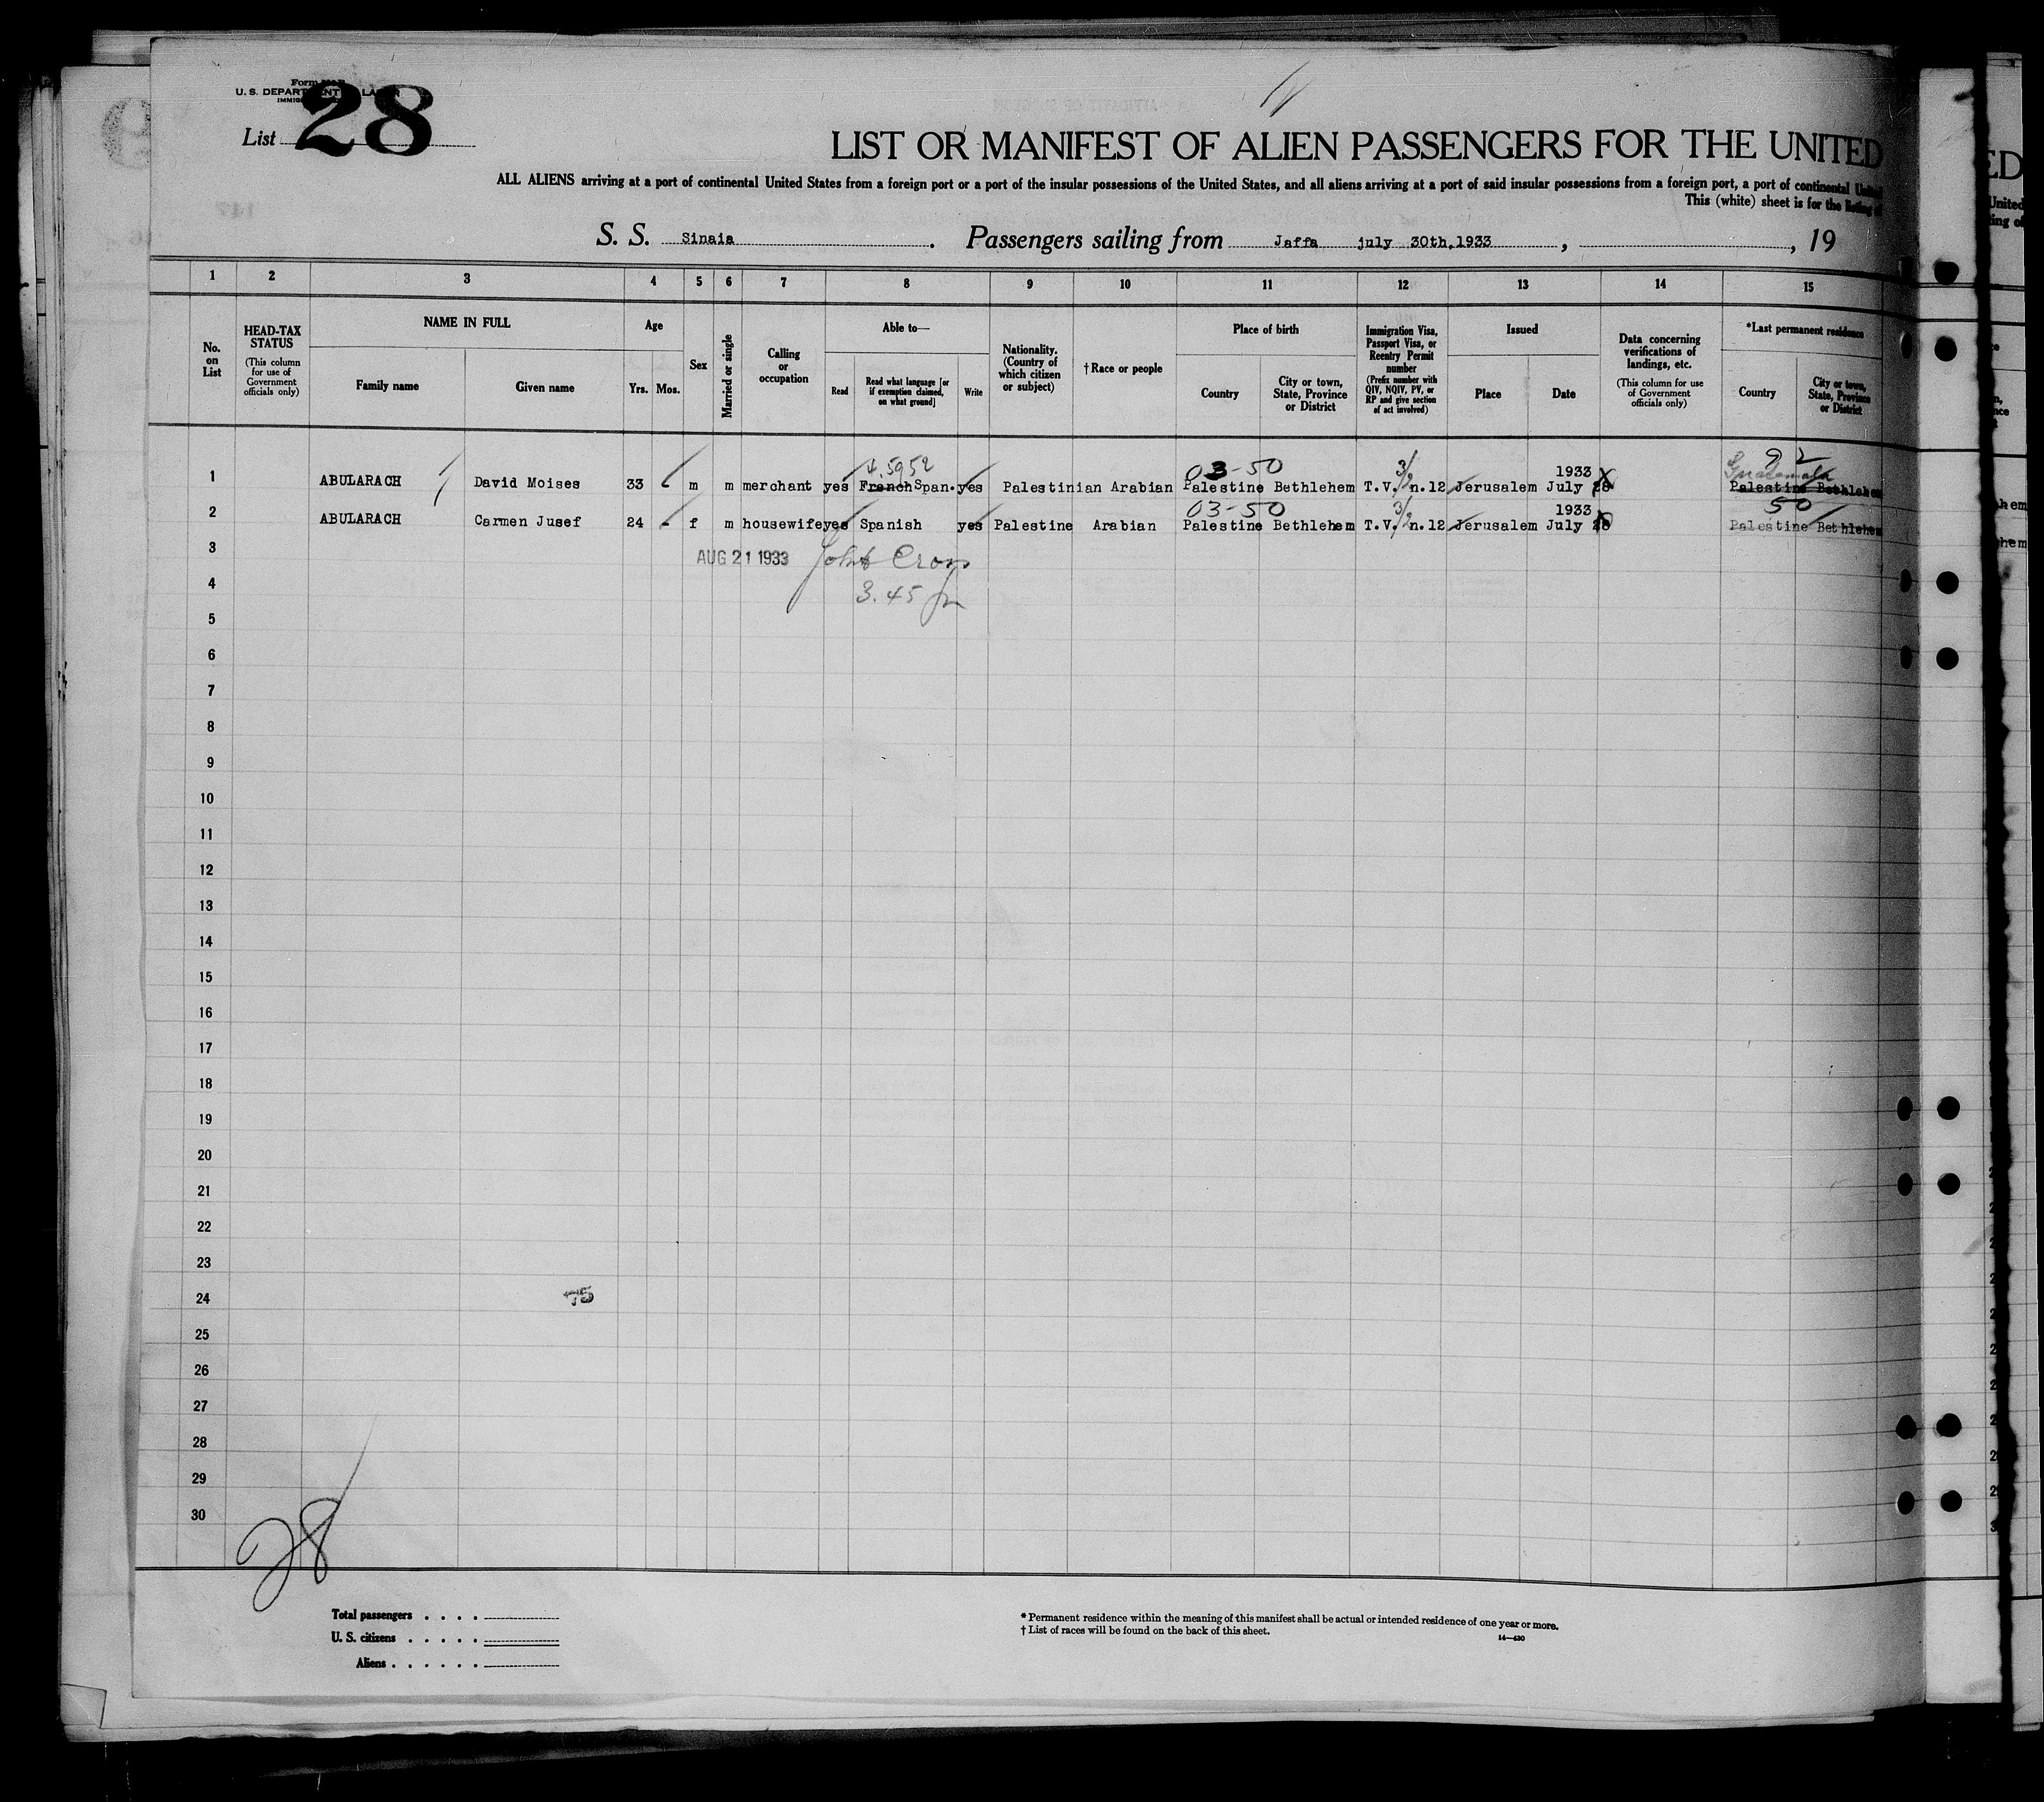 U. S. DEPARTMENT
List 28
LIST OR MANIFEST OF ALIEN PASSENGERS FOR THE UNITED
ALL ALIENS arriving at a port of continental United States from a foreign port or a port of the insular possessions of the United States, and all aliens arriving at a port of said insular possessions from a foreign port, a port of continental United
This (white) sheet is for the listing of
S. S. Sinaia. Passengers sailing from Jaffa july 30th,1933, , 19
1 2 3 4 5 6 7 8 9 10 11 12 13 14 15
No. on List
HEAD-TAX STATUS (This column for use of Government officials only)
NAME IN FULL
Family name
Given name
Age
Yrs. Mos.
Sex
Married or single
Calling or occupation
Able to—
Read
Read what language [or if exemption claimed, on what ground]
Write
Nationality. (Country of which citizen or subject)
†Race or people
Place of birth
Country
City or town, State, Province or District
Immigration Visa, Passport Visa, or Reentry Permit number (Prefix number with QIV, NQIV, PV, or RP and give section of act involved)
Issued
Place
Date
Data concerning verifications of landings, etc. (This column for use of Government officials only)
*Last permanent residence
Country
City or town, State, Province or District
4.5952 03-50 3/2 1933 92
Guatemala
1 ABULARACH David Moises 33 - m m merchant yes French Span. yes Palestinian Arabian Palestine Bethlehem T.V. n.12 Jerusalem July 28 Palestine Bethlehem
03-50 3/2 1933 50
2 ABULARACH Carmen Jusef 24 - f m housewife yes Spanish yes Palestine Arabian Palestine Bethlehem T.V. n.12 Jerusalem July 28 Palestine Bethlehem
3 AUG 21 1933
4 3.45
5
6
7
8
9
10
11
12
13
14
15
16
17
18
19
20
21
22
23
24 75
25
26
27
28
29
30
28
Total passengers . . . .
U. S. citizens . . . . .
Aliens . . . . . .
* Permanent residence within the meaning of this manifest shall be actual or intended residence of one year or more.
† List of races will be found on the back of this sheet.
14—430